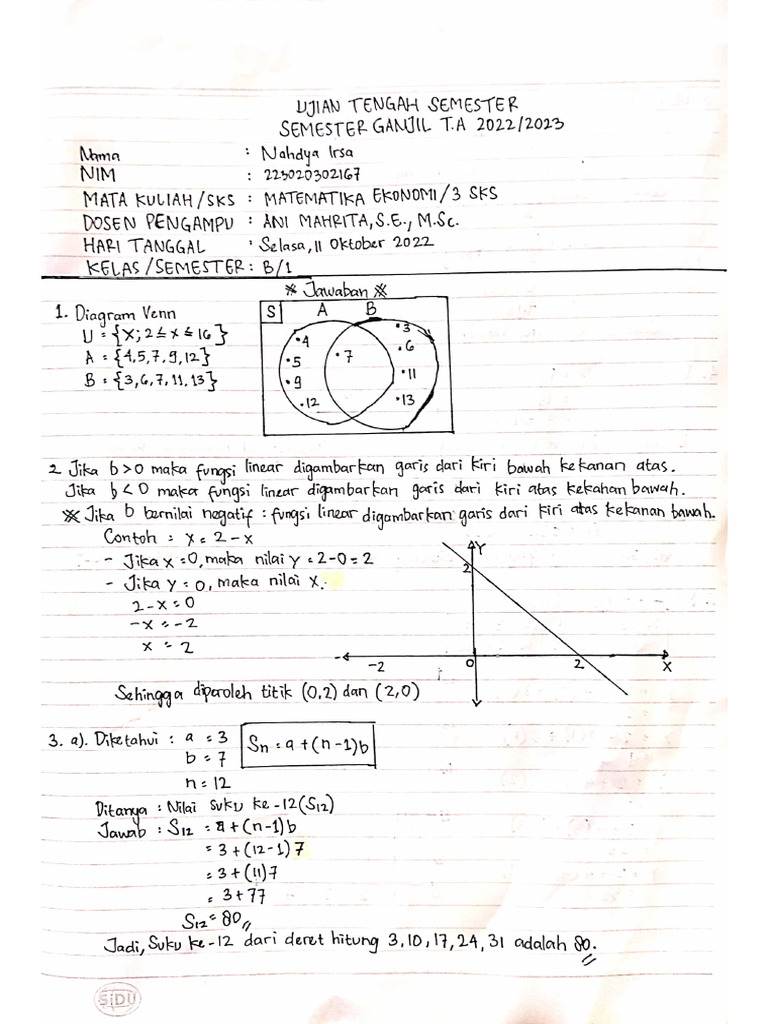 UJIAN TENGAH SEMESTER
SEMESTER GANJIL T.A 2022/2023
Nama : Nahdya Irsa
NIM : 223020302167
MATA KULIAH/SKS : MATEMATIKA EKONOMI/3 SKS
DOSEN PENGAMPU : ANI MAHRITA, S.E., M.Sc.
HARI TANGGAL : Selasa, 11 Oktober 2022
KELAS/SEMESTER : B/1
※ Jawaban ※
1. Diagram Venn
U = {X; 2 ≤ x ≤ 16}
A = {4,5,7,9,12}
B = {3,6,7,11,13}
S A B
•4 •5 •9 •12
•7
•3 •6 •11 •13
2 Jika b > 0 maka fungsi linear digambarkan garis dari kiri bawah kekanan atas.
Jika b < 0 maka fungsi linear digambarkan garis dari kiri atas kekahan bawah.
※ Jika b bernilai negatif : fungsi linear digambarkan garis dari kiri atas kekanan bawah.
Contoh : x = 2 - x
- Jika x = 0, maka nilai y = 2-0 = 2
- Jika y = 0, maka nilai x.
2-x = 0
-x = -2
x = 2
Y
2
-2 0 2 X
Sehingga diperoleh titik (0,2) dan (2,0)
3. a). Diketahui : a = 3
b = 7
n = 12
Sn = a + (n-1)b
Ditanya : Nilai suku ke-12 (S12)
Jawab : S12 = a + (n-1)b
= 3 + (12-1)7
= 3 + (11)7
= 3 + 77
S12 = 80
Jadi, Suku ke-12 dari deret hitung 3, 10, 17, 24, 31 adalah 80.
SiDU